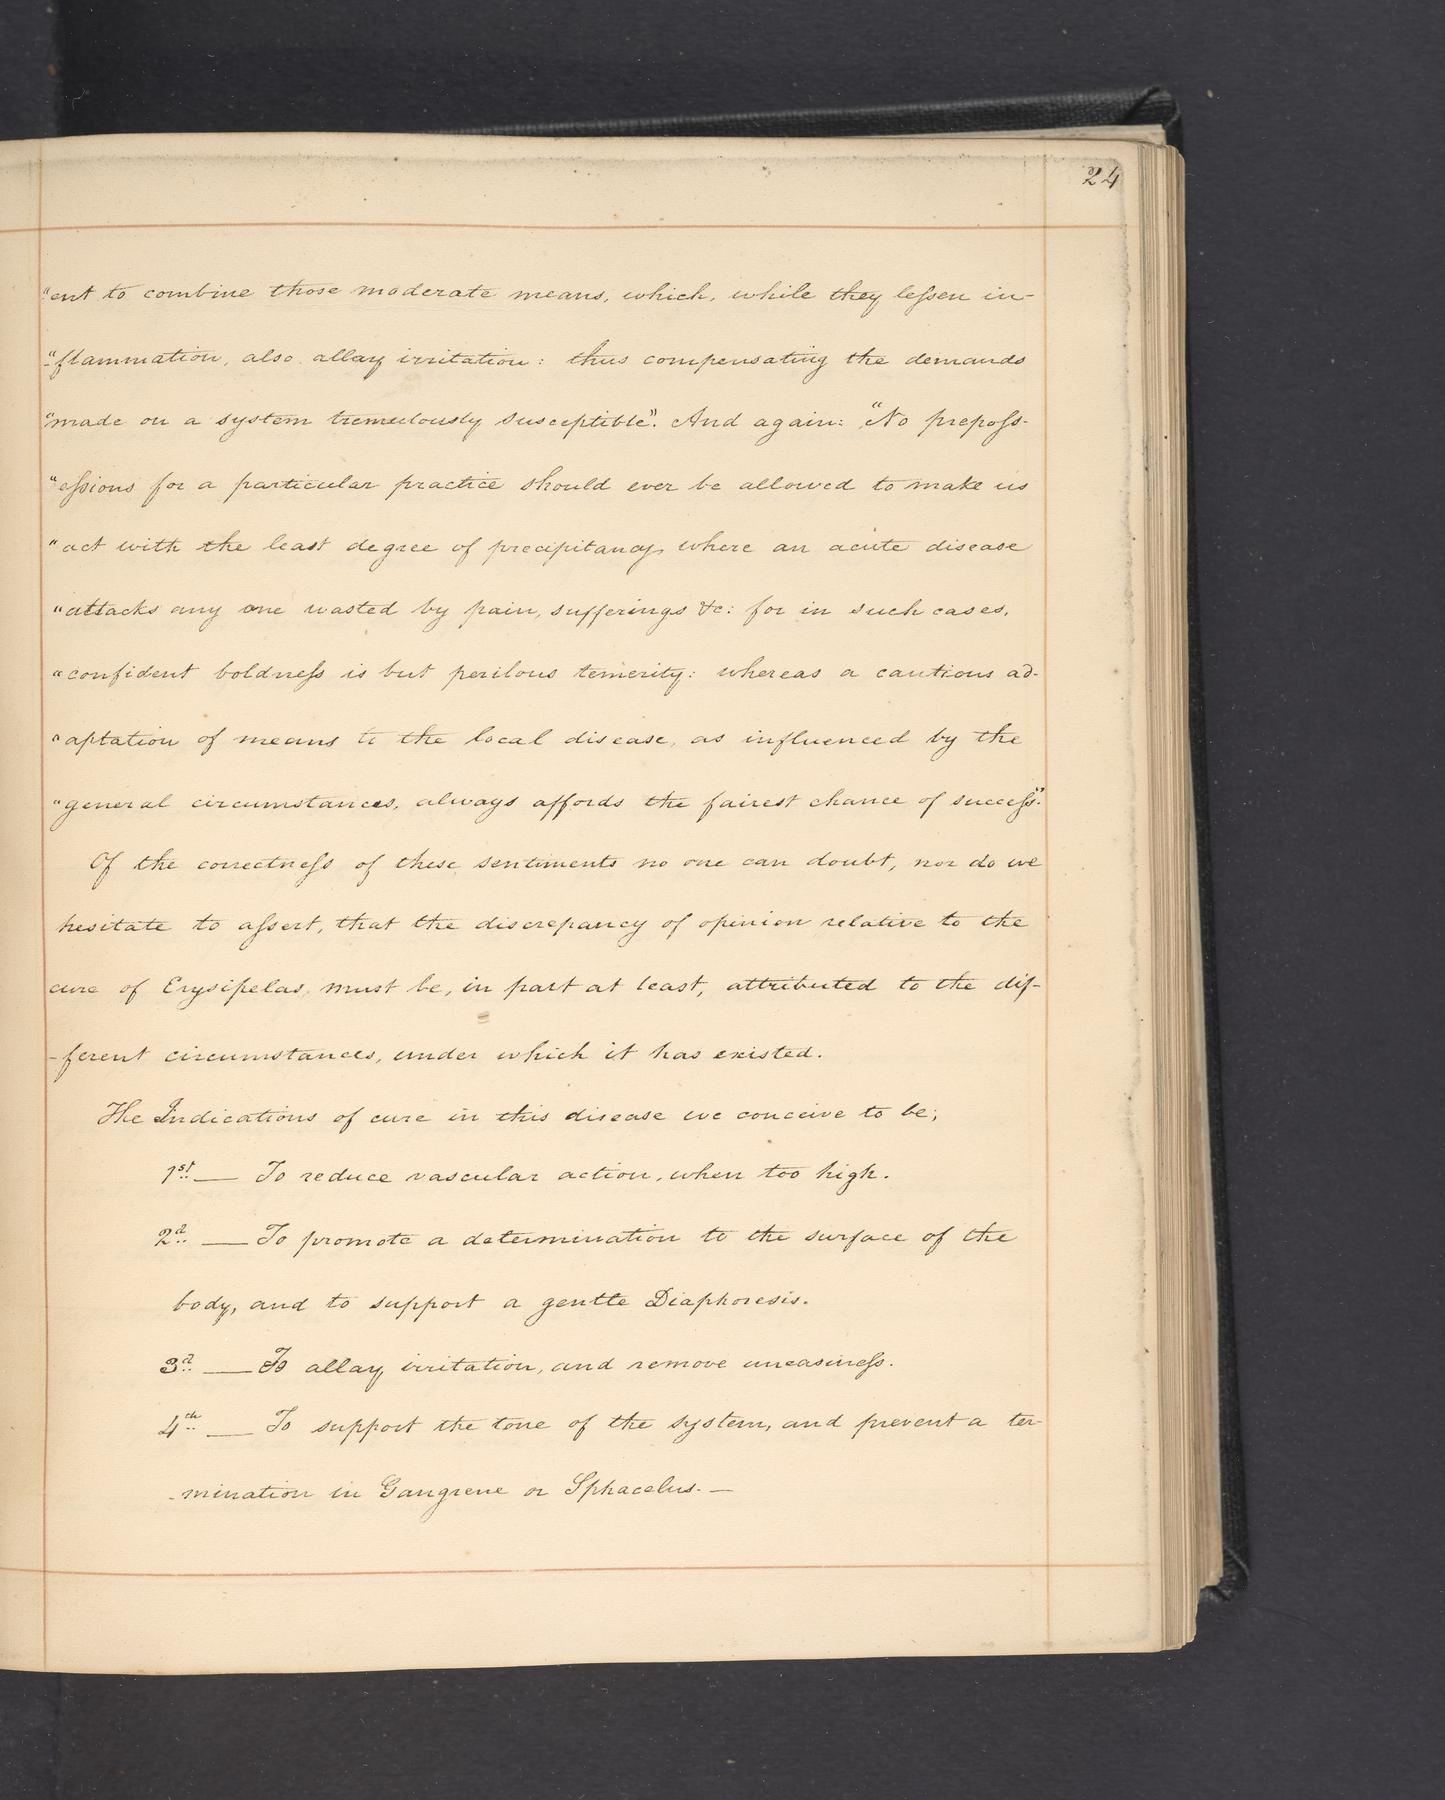 24
"ent to combine those moderate means, which, while they leſsen in-
"-flammation, also allay irritation: thus compensating the demands
"made on a system tremulously susceptible". And again: "No prepoſs-
"eſsions for a particular practice should ever be allowed to make us
"act with the least degree of precipitancy where an acute disease
"attacks any one wasted by pain, sufferings &c: for in such cases,
"confident boldneſs is but perilous temerity: whereas a cautious ad-
"aptation of means to the local disease, as influenced by the
"general circumstances, always affords the fairest chance of succeſs."
Of the correctneſs of these sentiments no one can doubt, nor do we
hesitate to aſsert, that the discrepancy of opinion relative to the
cure of Erysipelas must be, in part at least, attributed to the dif-
-ferent circumstances, under which it has existed.
The Indications of cure in this disease we conceive to be;
1st — To reduce vascular action, when too high.
2d — To promote a determination to the surface of the
body, and to support a gentle Diaphoresis.
3d — To allay irritation, and remove uneasineſs.
4th — To support the tone of the system, and prevent a ter-
-mination in Gangrene or Sphacelus. —